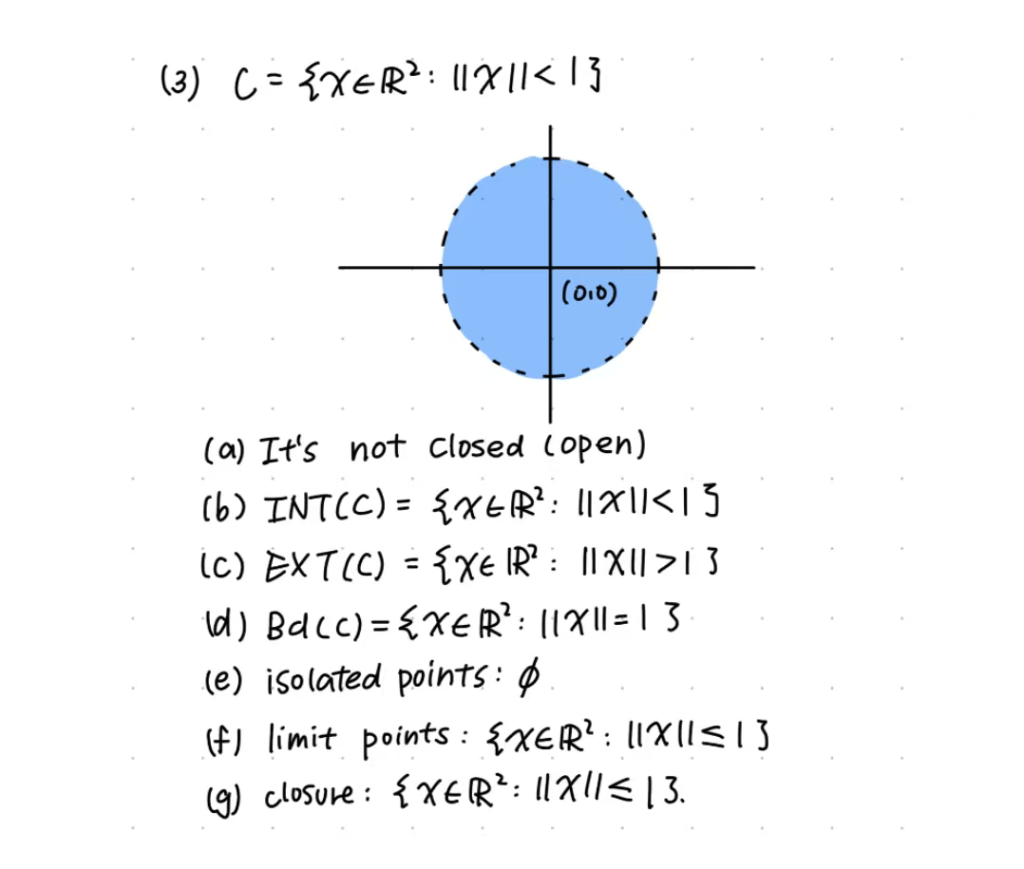 (3) C = {x∈ℝ²: ||x||<1}
(0,0)
(a) It's not closed (open)
(b) INT(C) = {x∈ℝ²: ||x||<1}
(c) EXT(C) = {x∈ℝ²: ||x||>1}
(d) Bd(C) = {x∈ℝ²: ||x||=1}
(e) isolated points: ϕ
(f) limit points: {x∈ℝ²: ||x||≤1}
(g) closure: {x∈ℝ²: ||x||≤1}.